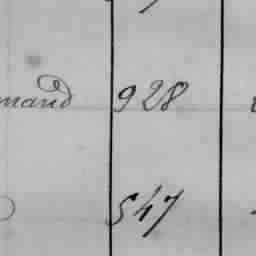 mand 928
547